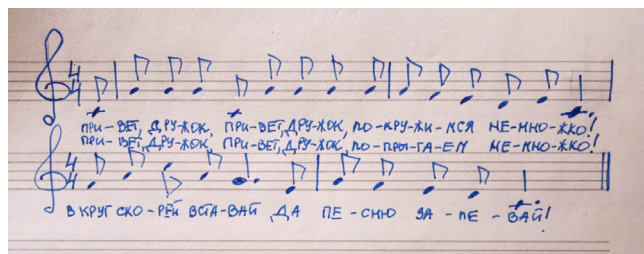 4/4
ПРИ-ВЕТ, ДРУ-ЖОК, ПРИ-ВЕТ, ДРУ-ЖОК, ПО-КРУ-ЖИ-МСЯ НЕ-МНО-ЖКО!
ПРИ-ВЕТ, ДРУ-ЖОК, ПРИ-ВЕТ, ДРУ-ЖОК, ПО-ПРЫ-ГА-ЕМ НЕ-МНО-ЖКО!
4/4
В КРУГ СКО-РЕЙ ВСТА-ВАЙ ДА ПЕ-СНЮ ЗА-ПЕ-ВАЙ!